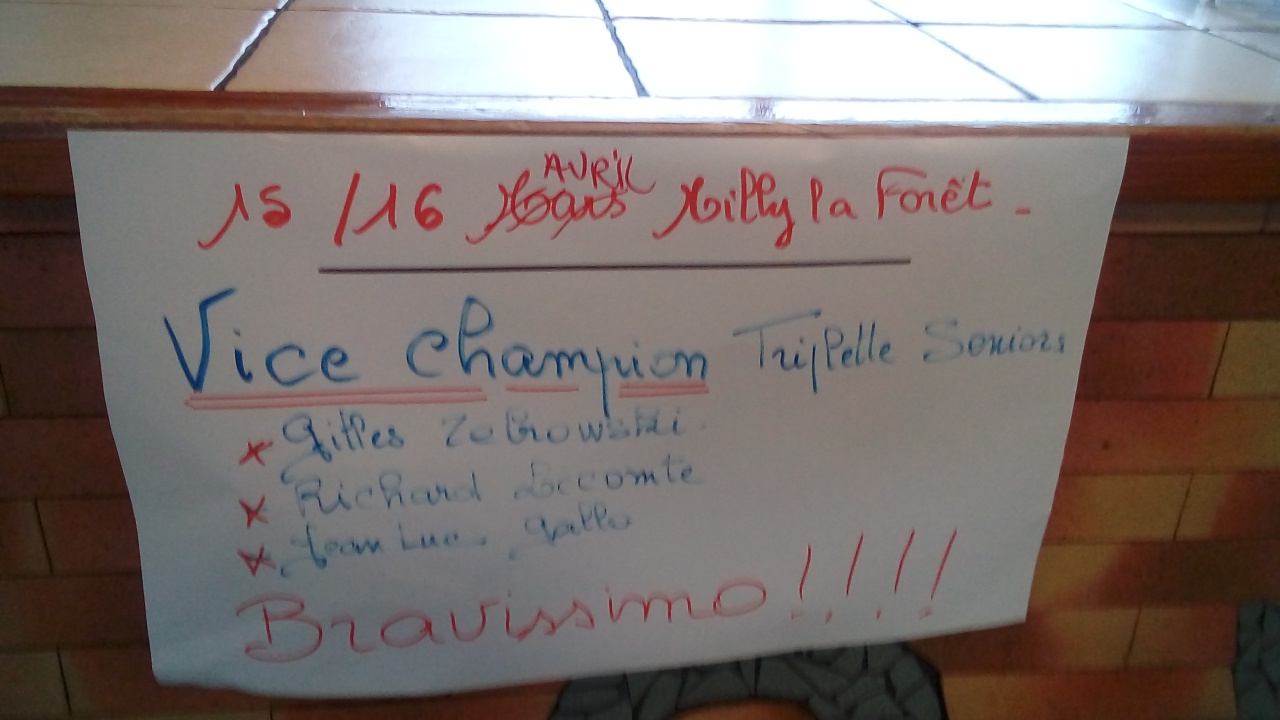 15 /16 AVRIL Milly la Forêt -
Vice champion Triplelle Seniors
x Gilles Zobrowski
x Richard Lecomte
x Jean Luc Gallo
Bravissimo !!!!